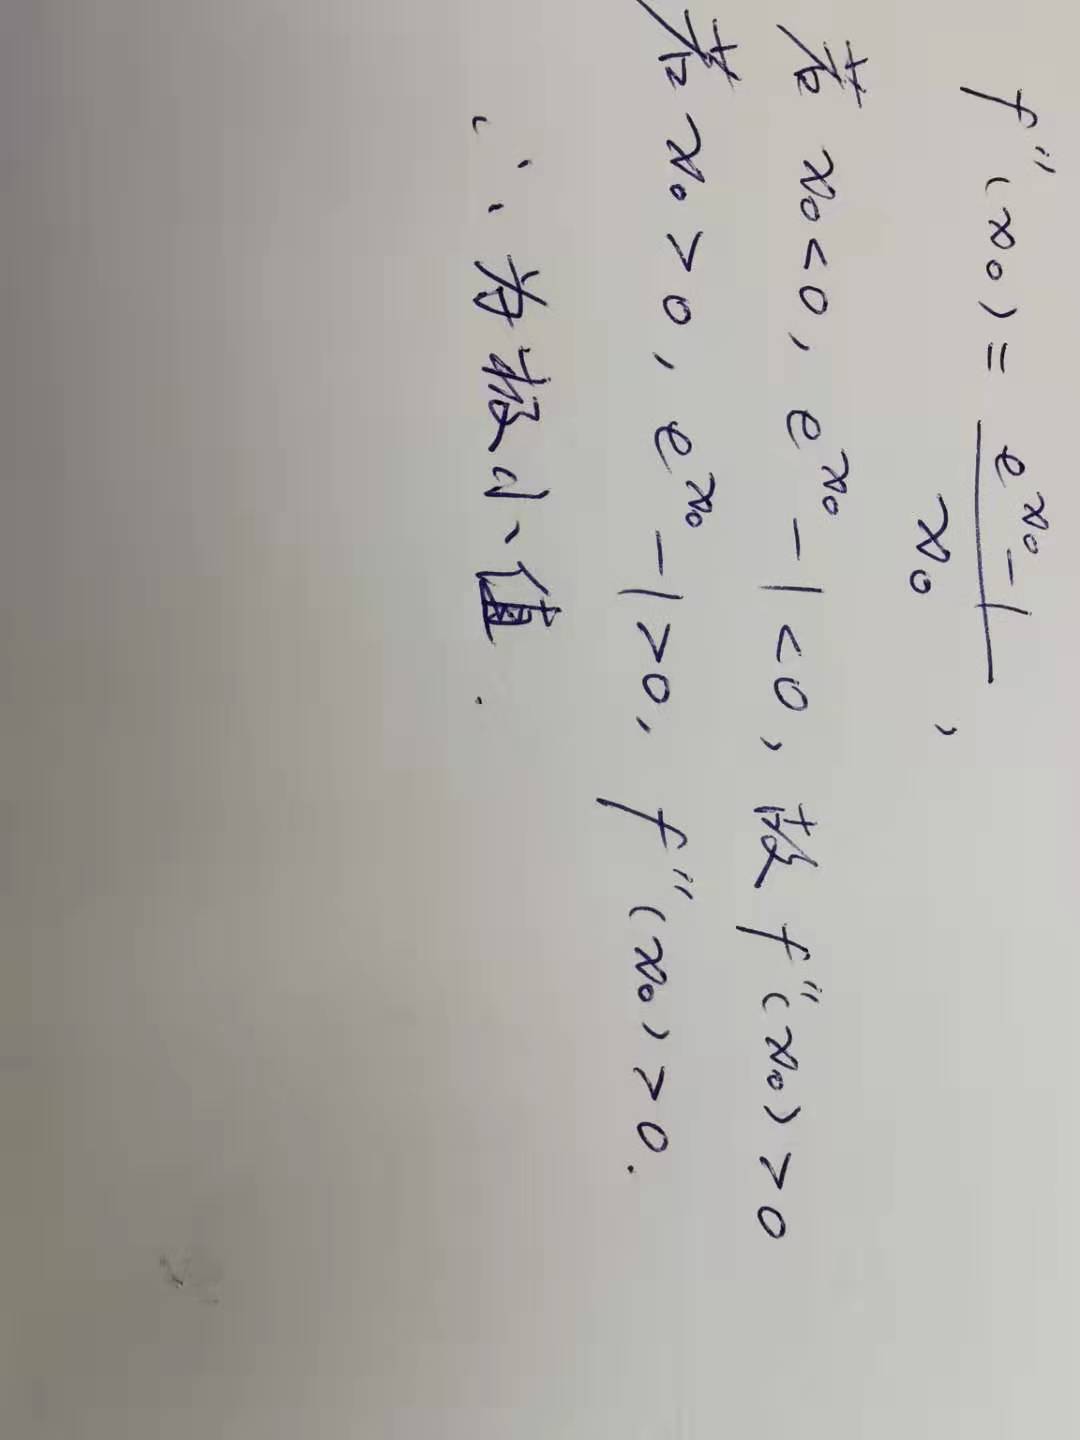 f''(x₀) = (e^x₀ - 1)/x₀ ,
若 x₀ < 0, e^x₀ - 1 < 0, 故 f''(x₀) > 0
若 x₀ > 0, e^x₀ - 1 > 0, f''(x₀) > 0.
∴ 为极小值.